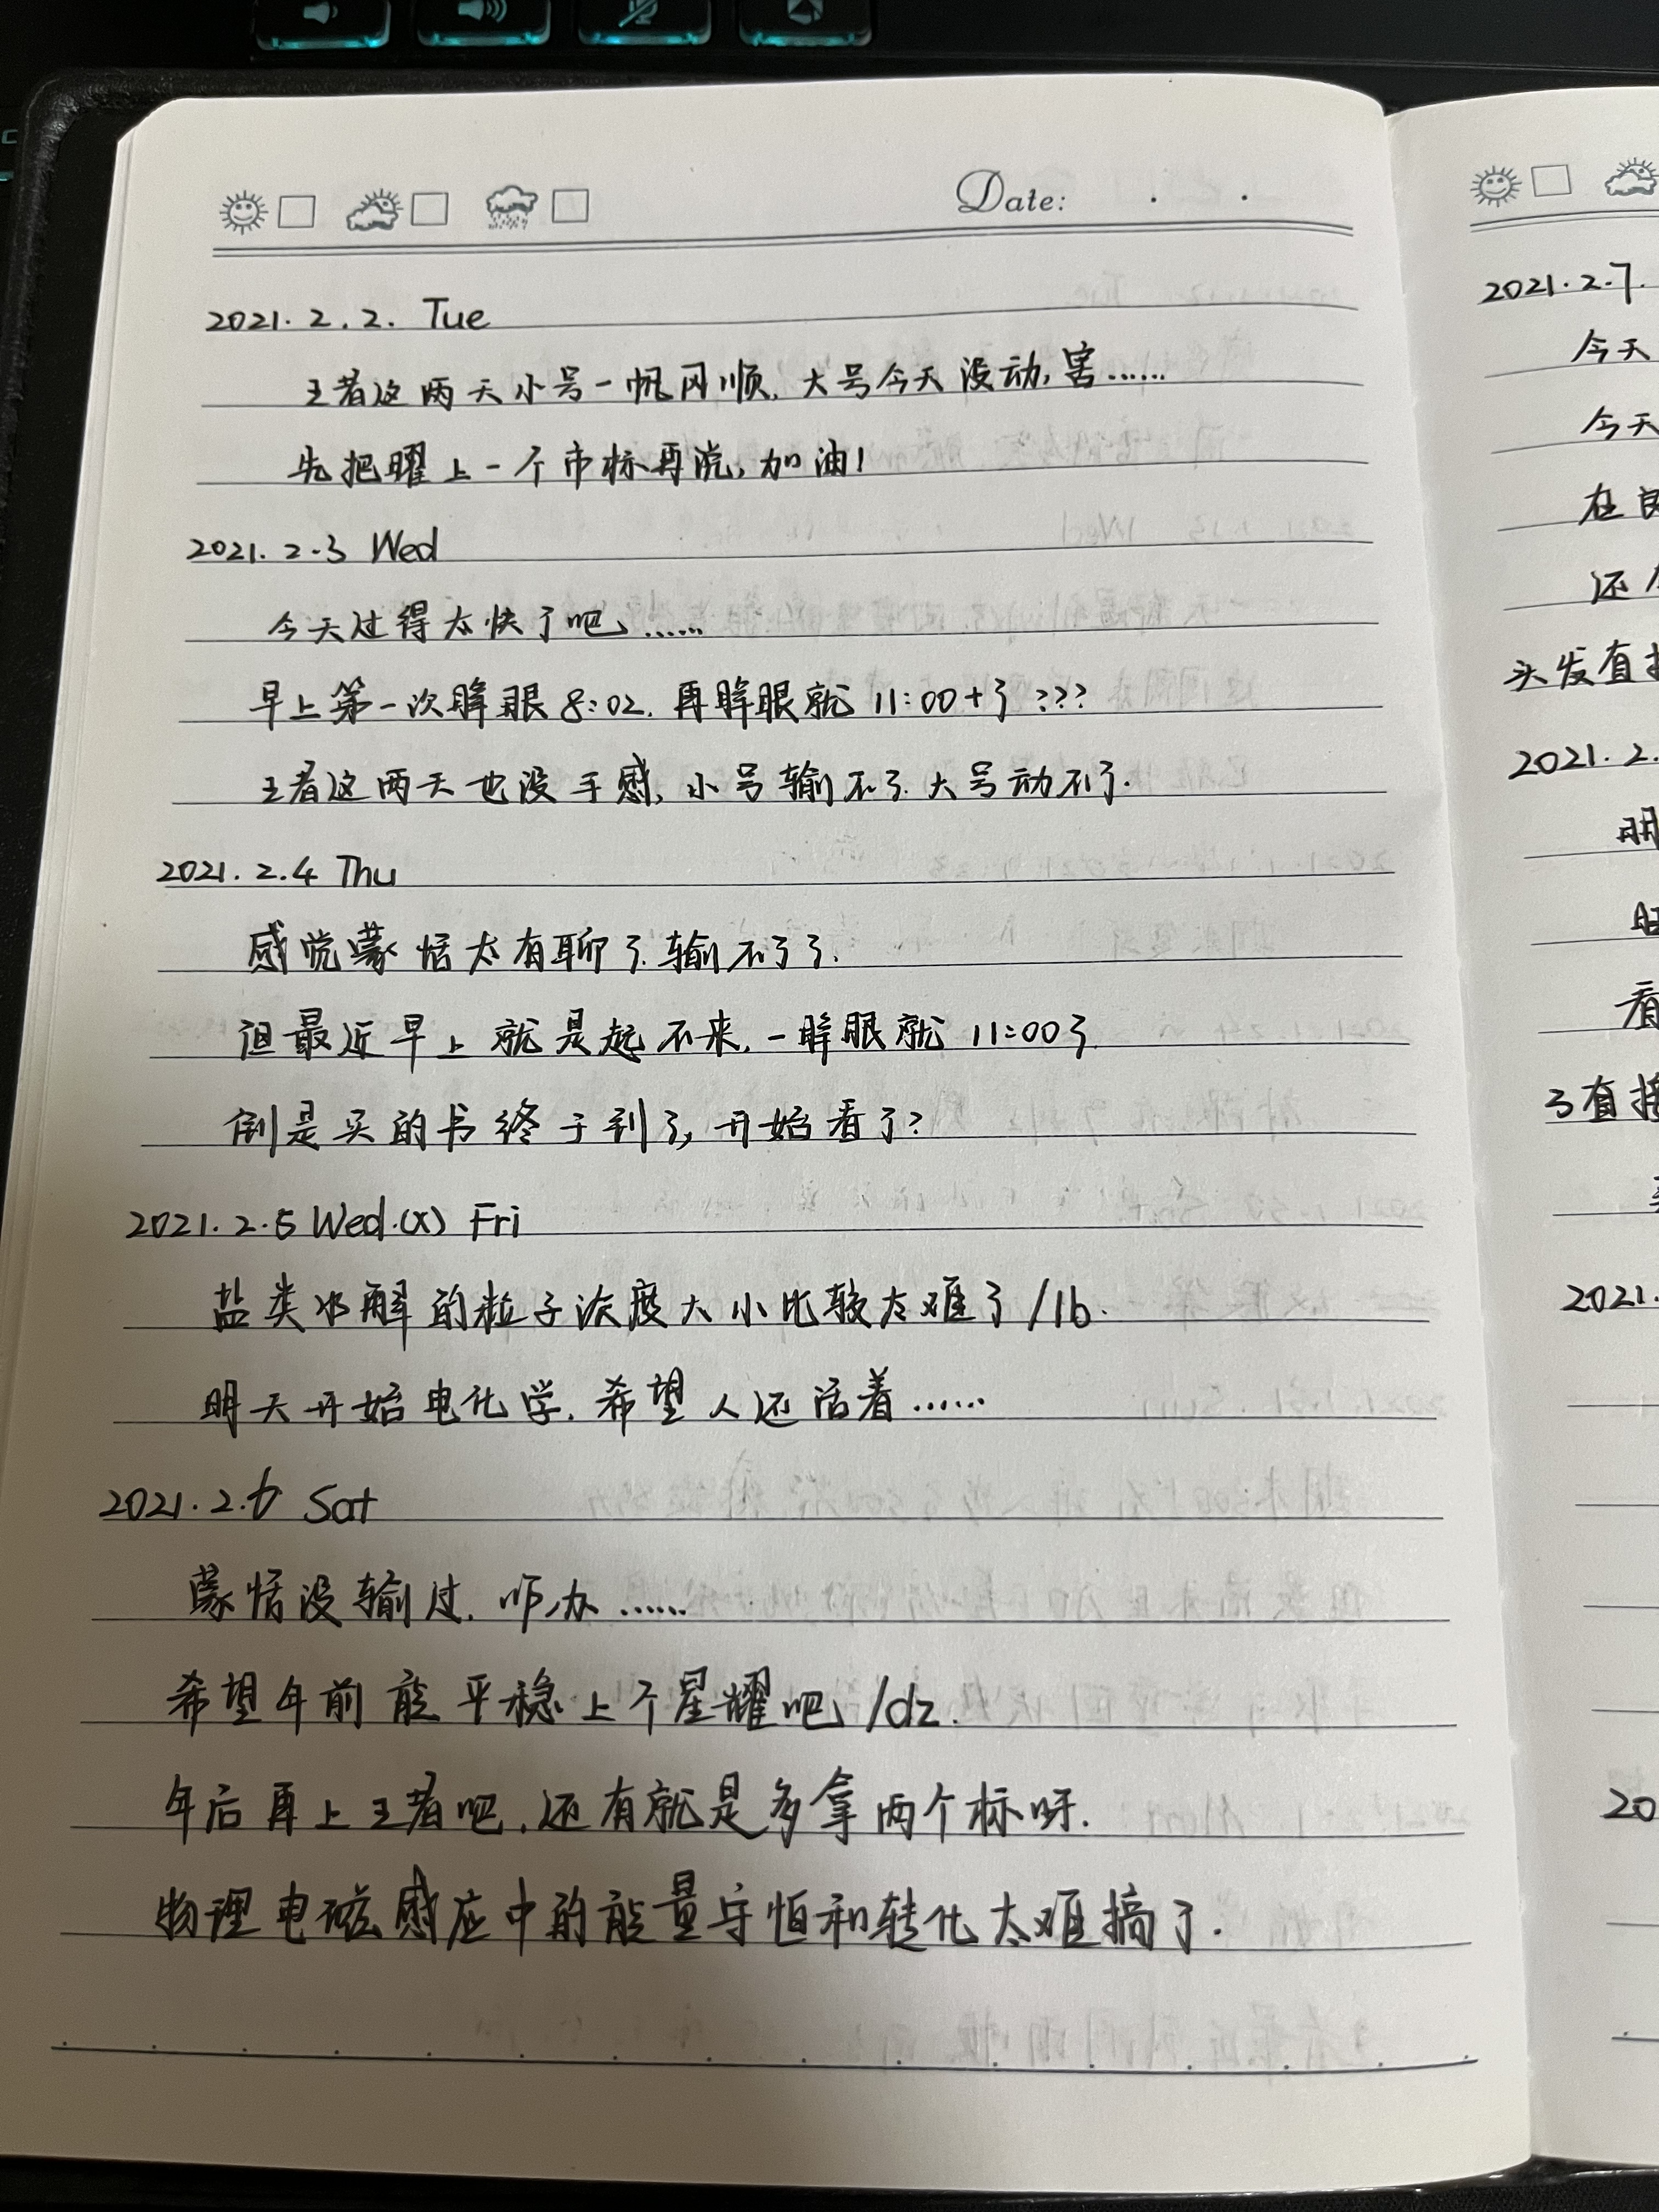 Date: . .
2021.2.2. Tue
王者这两天小号一帆风顺,大号今天没动,害……
先把曜上一个市标再说,加油!
2021.2.3 Wed
今天过得太快了吧……
早上第一次睁眼8:02,再睁眼就11:00+了???
王者这两天也没手感,小号输不了,大号动不了.
2021.2.4 Thu
感觉蒙恬太有聊了,输不了了.
但最近早上就是起不来,一睁眼就11:00了
倒是买的书终于到了,开始看了?
2021.2.5 Wed.(x) Fri
盐类水解的粒子浓度大小比较太难了/lb.
明天开始电化学.希望人还活着……
2021.2.6 Sat
蒙恬没输过.咋办……
希望年前能平稳上个星耀吧/dz.
年后再上王者吧.还有就是多拿两个标呀.
物理电磁感应中的能量守恒和转化太难搞了.
2021.2.7.
今天
今天
在
还
头发直
2021.2.
明
看
了直接
2021.
20